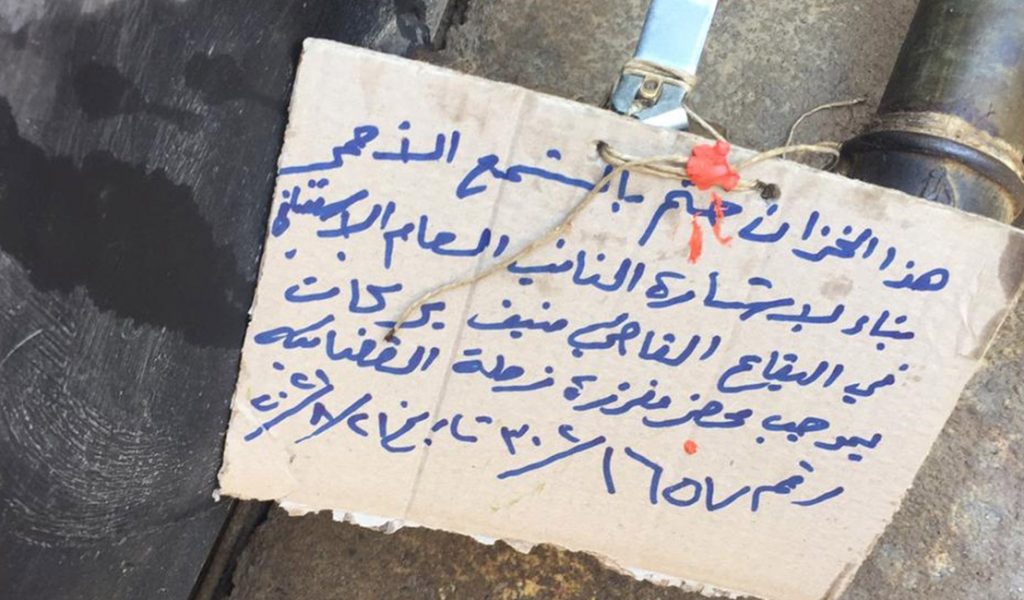 هذا الخزان ختم بالشمع الأحمر
بناء لإشارة النائب العام الاستئنافي
في البقاع القاضي منيف بركات
بموجب محضر مفرزة زحلة القضائية
رقم ١٦٥٧/٣٠٢ تاريخ ٢١/٨/٢١